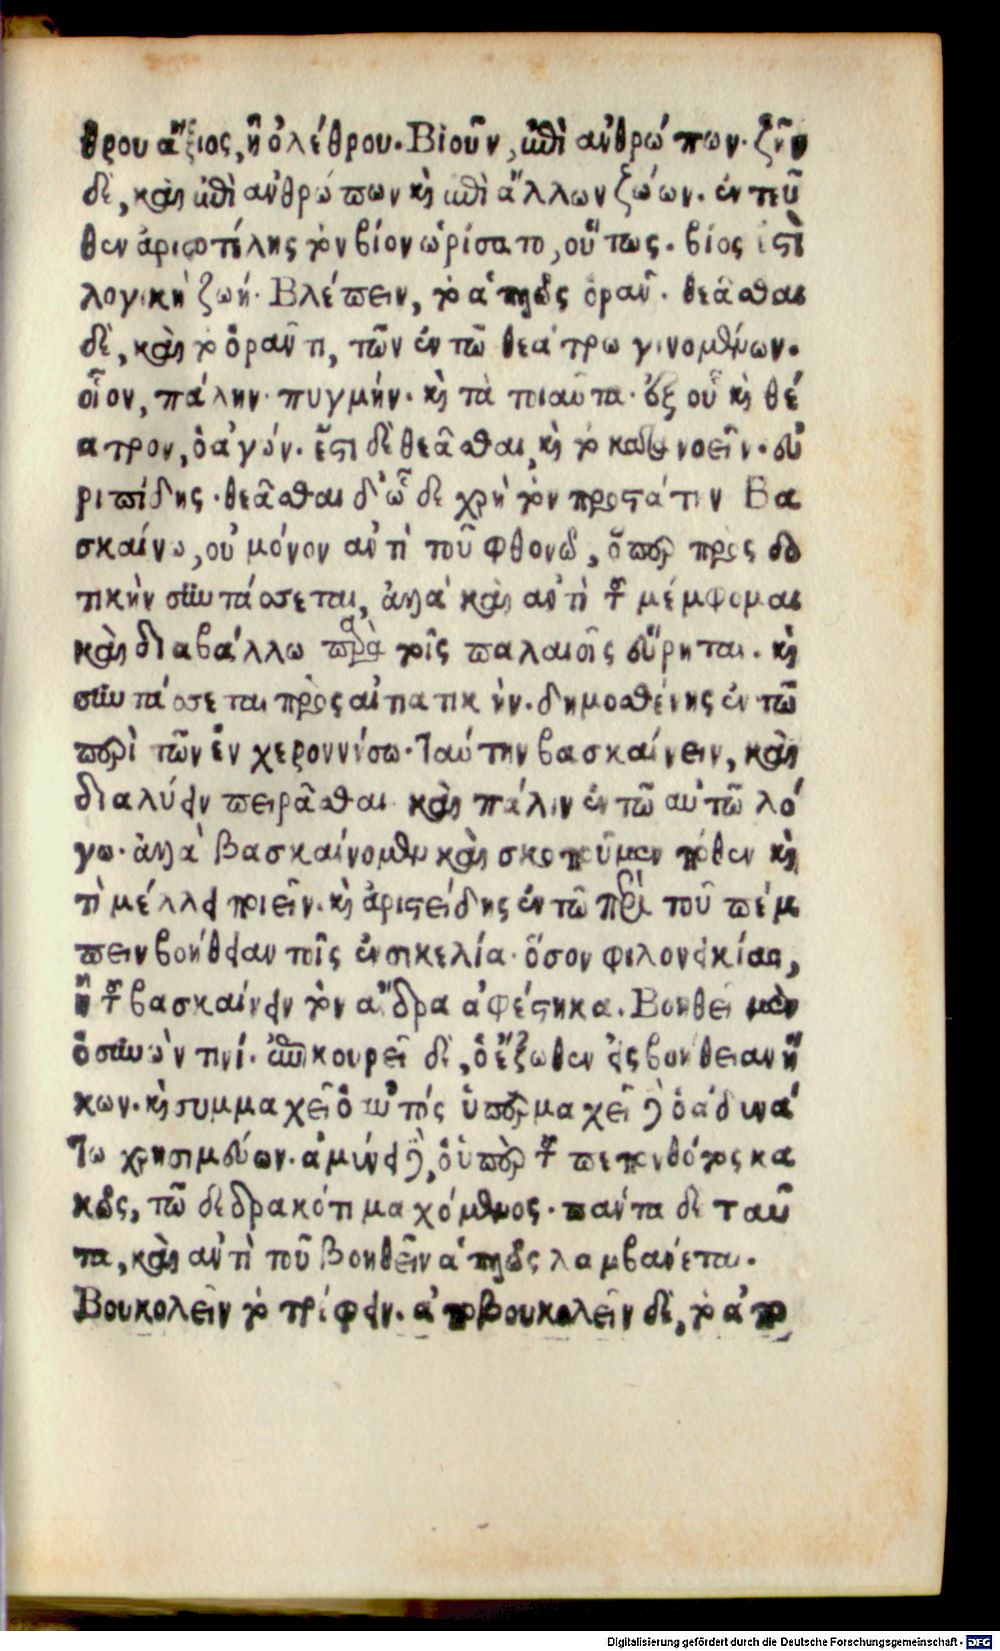 θρου ἄξιος, ἢ ὀλέθρου. Βιοῦν, ἐπὶ ἀνθρώπων. ζῆν
δὲ, καὶ ἐπὶ ἀνθρώπων καὶ ἐπὶ ἄλλων ζώων. ἐντεῦ
θεν ἀριστοτέλης τὸν βίον ὡρίσατο, οὕτως. βίος ἐστὶ
λογικὴ ζωή. Βλέπειν, τὸ ἁπλῶς ὁρᾶν. θεᾶσθαι
δὲ, καὶ τὸ ὁρᾶν τι, τῶν ἐν τῶ θεάτρω γινομένων.
οἷον, πάλην. πυγμήν. καὶ τὰ τοιαῦτα. ἐξ οὗ καὶ θέ
ατρον, ὁ ἀγών. ἔστι δὲ θεᾶσθαι, καὶ τὸ κατανοεῖν. εὐ
ριπίδης. θεᾶσθαι δ' ὧδε χρὴ τὸν προστάτην Βα
σκαίνω, οὐ μόνον ἀντὶ τοῦ φθονῶ, ὅπερ πρὸς δο
τικὴν συντάσσεται, ἀλλὰ καὶ ἀντὶ τοῦ μέμφομαι
καὶ διαβάλλω παρὰ τοῖς παλαιοῖς εὕρηται. καὶ
συντάσσεται πρὸς αἰτιατικήν. δημοσθένης ἐν τῶ
περὶ τῶν ἐν χερονήσω. ταύτην βασκαίνειν, καὶ
διαλύειν πειρᾶσθαι. καὶ πάλιν ἐν τῶ αὐτῶ λό
γω. ἀλλὰ βασκαίνομεν καὶ σκοποῦμεν πόθεν καὶ
τὶ μέλλει ποιεῖν. καὶ ἀριστείδης ἐν τῶ περὶ τοῦ πέμ
πειν βοήθειαν τοῖς ἐν σικελία. ὅσον φιλονεικίας,
ἢ τοῦ βασκαίνειν τὸν ἄνδρα ἀφέστηκα. Βοηθεῖ μὲν
ὁ συνών τινί. ἐπικουρεῖ δὲ, ὁ ἔξωθεν εἰς βοήθειαν ἥ
κων. καὶ συμμαχεῖ ὁ αὐτός ὑπερμαχεῖ δὲ ὁ ἀδυνά
τω χρησιμεύων. ἀμύνει δὲ, ὁ ὑπὲρ τοῦ πεπονθότος κα
κῶς, τῶ δεδρακότι μαχόμενος. πάντα δὲ ταῦ
τα, καὶ ἀντὶ τοῦ βοηθεῖν ἁπλῶς λαμβάνεται.
Βουκολεῖν τὸ τρέφειν. ἀποβουκολεῖν δὲ, τὸ ἀπο
Digitalisierung gefördert durch die Deutsche Forschungsgemeinschaft - DFG